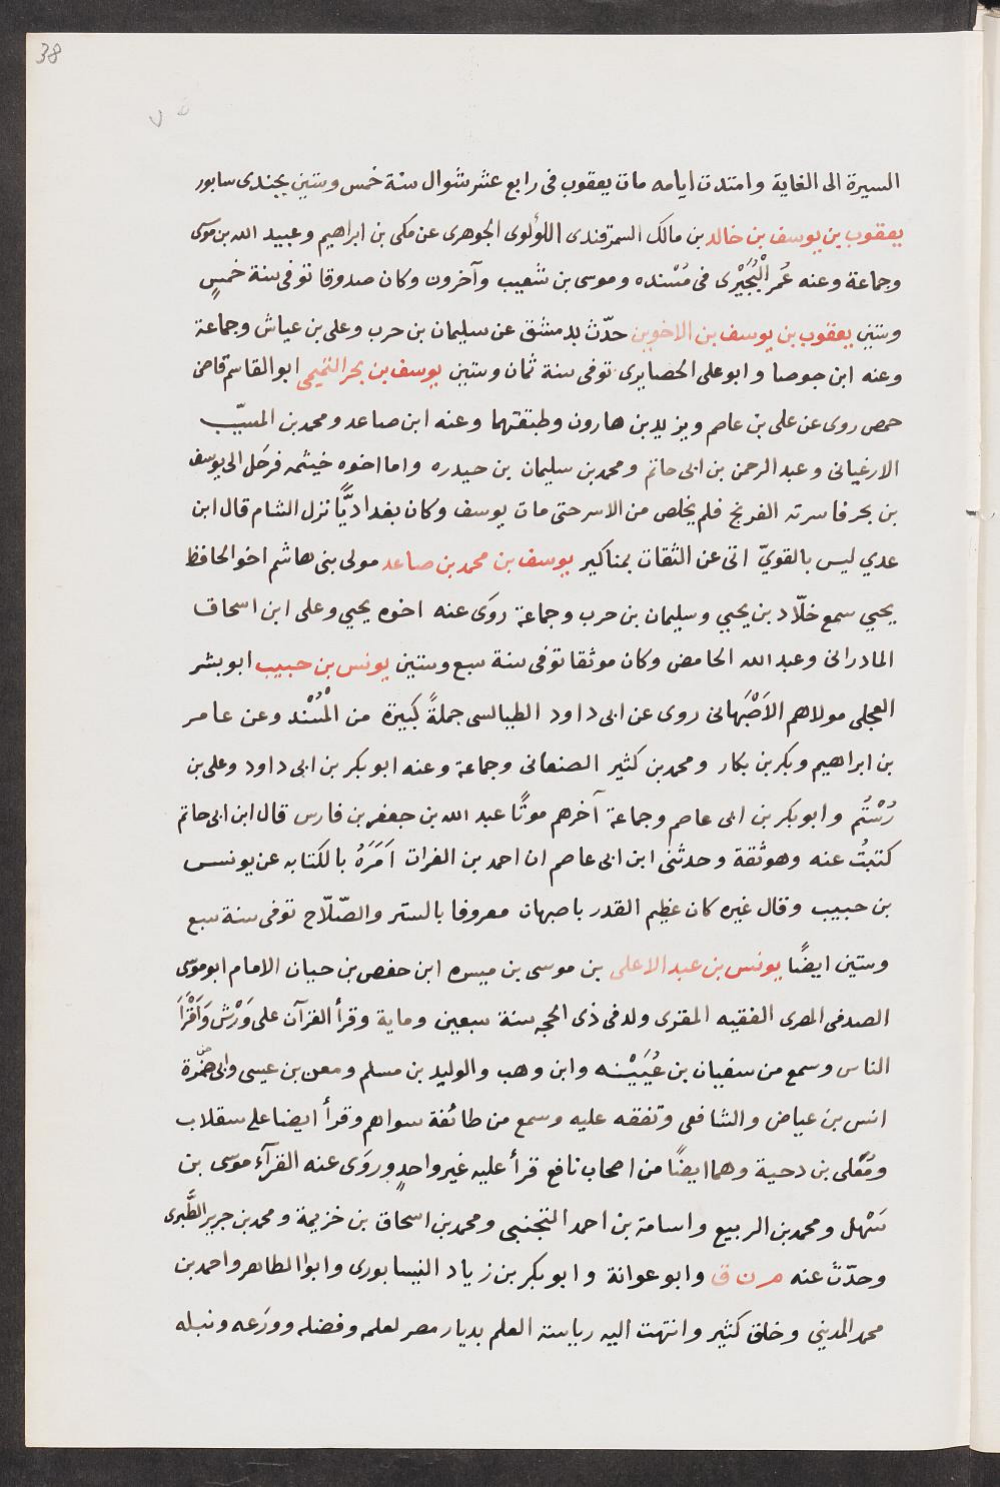 38
السيرة الى الغاية وامتدت ايامه مات يعقوب فى رابع عشر شوال سنة خمس وستين بجندى سابور
يعقوب بن يوسف بن خالد بن مالك السمرقندى اللؤلوى الجوهرى عن مكى بن ابراهيم وعبيد الله بن موسى
وجماعة وعنه عُمر الْبُجَيْرى فى مُسْنده وموسى بن شعيب وآخرون وكان صدوقا توفى سنة خمسٍ
وستين يعقوب بن يوسف بن الاخوين حدّث بدمشق عن سليمان بن حرب وعلى بن عياش وجماعة
وعنه ابن جوصا وابو على الحصايرى توفى سنة ثمان وستين يوسف بن بحر التميمى ابو القاسم قاضى
حمص روى عن على بن عاصم ويزيد بن هارون وطبقتهما وعنه ابن صاعد ومحمد بن المسيّب
الارغيانى وعبد الرحمن بن ابى حاتم ومحمد بن سليمان بن حيدره واما اخوه خيثمه فرحَل الى يوسف
بن بحر فاسرته الفرنج فلم يخلص من الاسر حتى مات يوسف وكان بغداديًّا نزل الشام قال ابن
عدي ليس بالقويّ اتى عن الثقات بمناكير يوسف بن محمد بن صاعد مولى بنى هاشم اخو الحافظ
يحيي سمع خلّاد بن يحيي وسليمان بن حرب وجماعة روَى عنه اخوه يحيي وعلى ابن اسحاق
المادرانى وعبد الله الحامض وكان موثقا توفى سنة سبع وستين يونس بن حبيب ابو بشر
العجلى مولاهم الاَصْبَهانى روى عن ابى داود الطيالسى جملةً كبيرة من الْمُسْند وعن عامر
بن ابراهيم وبكر بن بكار ومحمد بن كثير الصنعانى وجماعة وعنه ابو بكر بن ابى داود وعلى بن
رُسْتُم وابو بكر بن ابى عاصم وجماعة آخرهم موتًا عبد الله بن جعفر بن فارس قال ابن ابى حاتم
كتبتُ عنه وهو ثقة وحدثنى ابن ابى عاصم ان احمد بن الفرات اَمَرَهُ بالكتابه عن يونس
بن حبيب وقال غيره كان عظيم القدر باصبهان معروفا بالستر والصّلّاح توفى سنة سبع
وستين ايضًا يونس بن عبد الاعلى بن موسى بن ميسره ابن حفص بن حيان الامام ابو موسى
الصدفى المصرى الفقيه المقرى ولد فى ذى الحجه سنة سبعين وماية وقرأ القرآن على وَرْش وَاَقْرَاَ
الناس وسمع من سفيان بن عُيَيْنه وابن وهب والوليد بن مسلم ومعن بن عيسى وابى ضمْرة
انس بن عياض والشافعى وتفقه عليه وسمع من طائفة سواهم وقرأ ايضا على سقلاب
ومُعْلى بن دحية وهما ايضًا من اصحاب نافع قرأ عليه غير واحدٍ وروَى عنه القرآء موسى بن
سَهْل ومحمد بن الربيع واسامة بن احمد التجنبى ومحمد بن اسحاق بن خزيمة ومحمد بن جرير الطَّبرى
وحدّث عنه م ن ق وابو عوانة وابو بكر بن زياد النيسابورى وابوا الطاهر واحمد بن
محمد المدينى وخلق كثير وانتهت اليه رياسته العلم بديار مصر لعلمه وفضله وورَعه ونبله